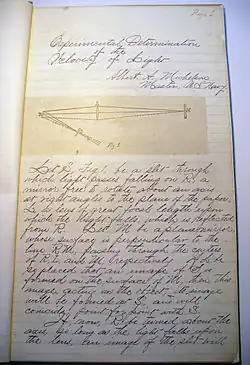 Page 1
Experimental Determination
of the
Velocity of Light
Albert A. Michelson,
Master, U.S. Navy.
Fig. 1
Let S, Fig. 1, be a slit, through
which light passes falling on R, a
mirror free to rotate about an axis
at right angles to the plane of the paper.
L, a lens of great focal length, upon
which the light falls which is reflected
from R. Let M be a plane mirror
whose surface is perpendicular to the
line R.M. passing through the centers
of R, L and M respectively. If L be
so placed that an image of S is
formed on the surface of M, then this
image acting as the object, its image
will be formed at S, and will
coincide, point for point with S.
If, now, R be turned about the
axis, so long as the light falls upon
the lens, an image of the slit will